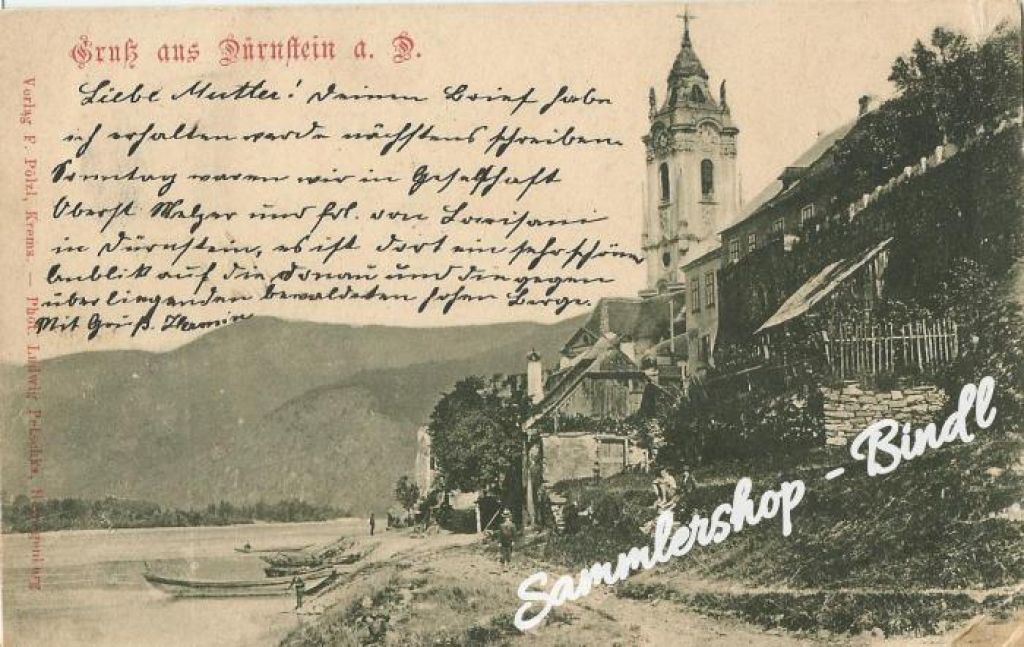 Gruß aus Dürnstein a. D.
Liebe Mutter! Deinen Brief habe
ich erhalten werde nächstens schreiben.
Sonntag waren wir in Gesellschaft
Oberst Melzer und frl. von Lowisani
in Dürnstein, es ist dort ein sehr schöner
Anblik auf die Donau und die gegen
überliegenden bewaldeten hohen Berge.
Mit Gruß
Verlag F. Pölzl, Krems. — Phot. Ludwig
Sammlershop - Bindl